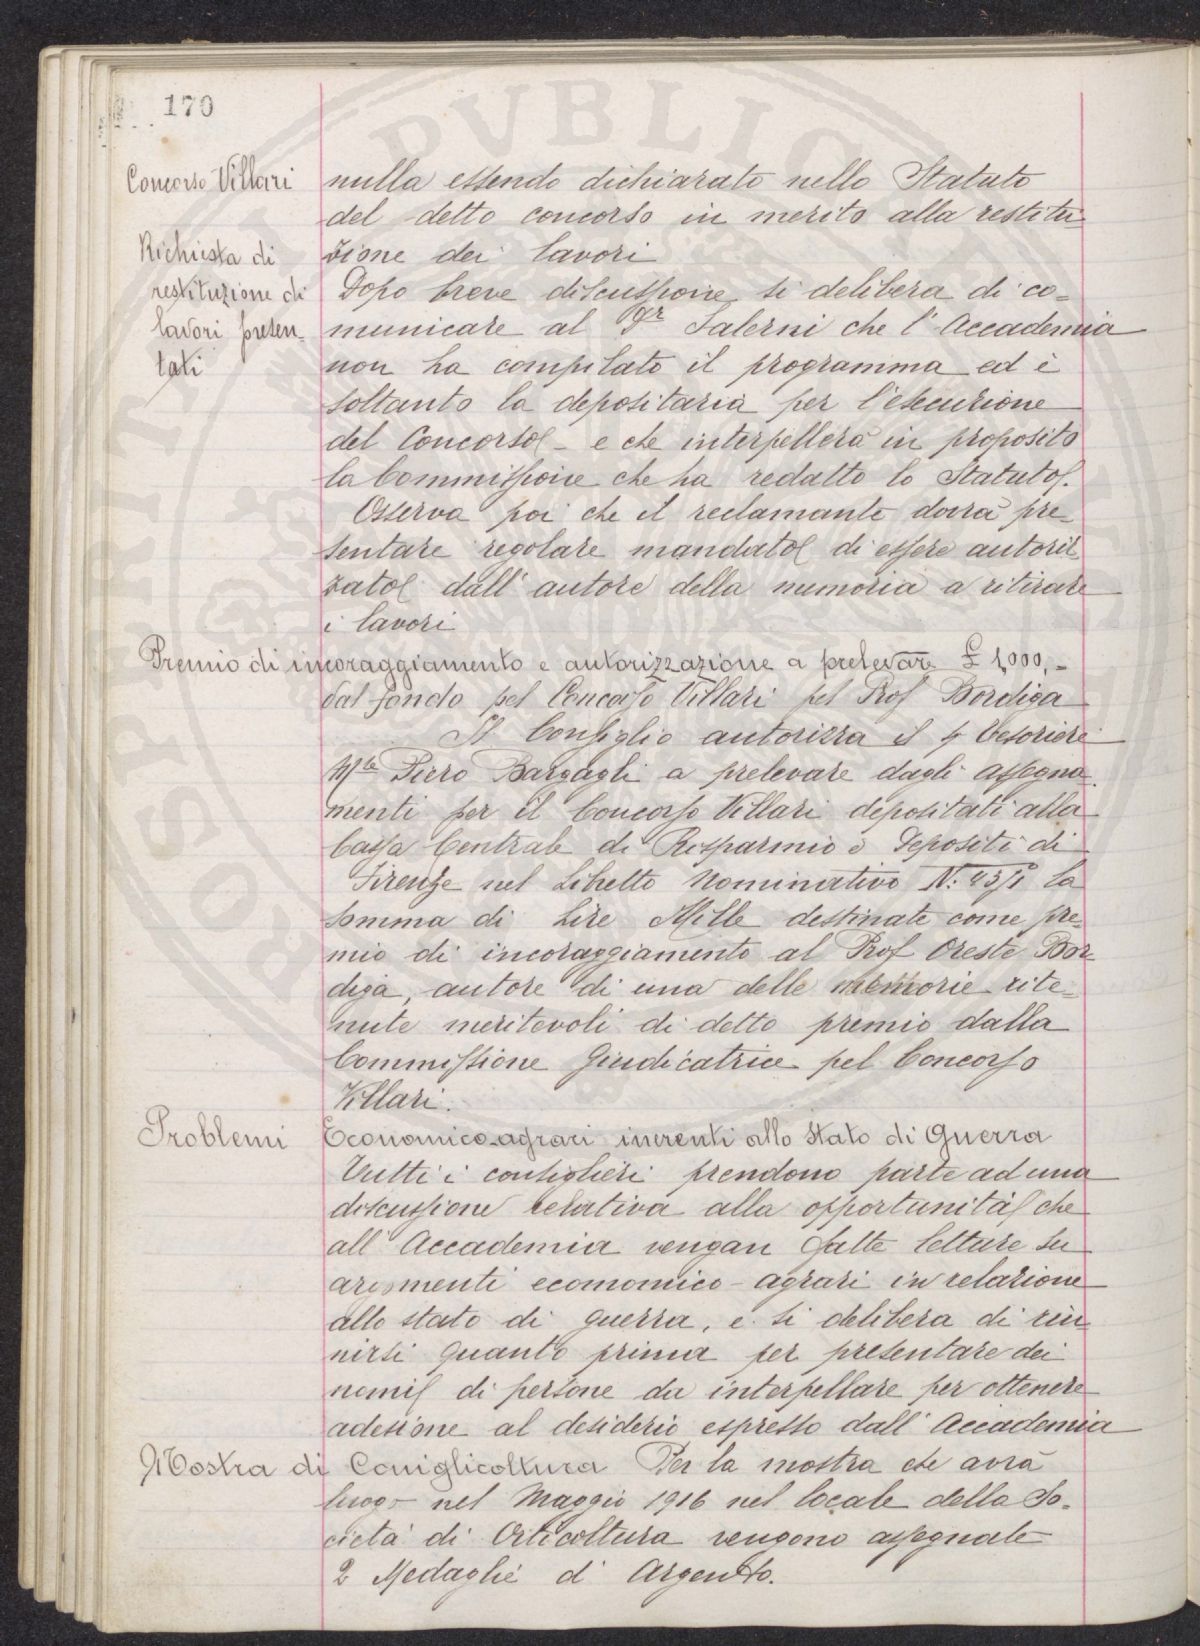 170
Concorso Villari
Richiesta di
restituzione di
lavori presen-
tati
nulla essendo dichiarato nello Statuto
del detto concorso in merito alla restitu-
zione dei lavori
Dopo breve discussione si delibera di co-
municare al Sr Salerni che l'Accademia
non ha compilato il programma ed è
soltanto la depositaria per l'esecuzione
del Concorso - e che interpellerà in proposito
la Commissione che ha redatto lo Statuto.
Osserva poi che il reclamante dovrà pre
sentare regolare mandato di essere autoriz
zato dall'autore della memoria a ritirare
i lavori
Premio di incoraggiamento e autorizzazione a prelevare £ 1,000,-
dal fondo pel Concorso Villari pel Prof Bordiga
Il Consiglio autorizza il Tesoriere
Mse Piero Bargagli a prelevare dagli assegna
menti per il Concorso Villari depositati alla
Cassa Centrale di Risparmio e Depositi di
Firenze nel Libretto Nominativo N: la
somma di Lire Mille destinate come pre-
mio di incoraggiamento al Prof Oreste Bor-
diga, autore di una delle memorie rite-
nute meritevoli di detto premio dalla
Commissione Giudicatrice pel Concorso
Villari.
Problemi Economico-agrari inerenti allo Stato di Guerra
Tutti i consiglieri prendono parte ad una
discussione relativa alla opportunità che
all'Accademia vengan fatte letture su
argomenti economico-agrari in relazione
allo stato di guerra, e si delibera di riu-
nirsi quanto prima per presentare dei
nomi di persone da interpellare per ottenere
adesione al desiderio espresso dall'Accademia
Mostra di Coniglicoltura Per la mostra che avrà
luogo nel Maggio 1916 nel locale della So-
cietà di Orticoltura vengono assegnate
2 Medaglie d'Argento.